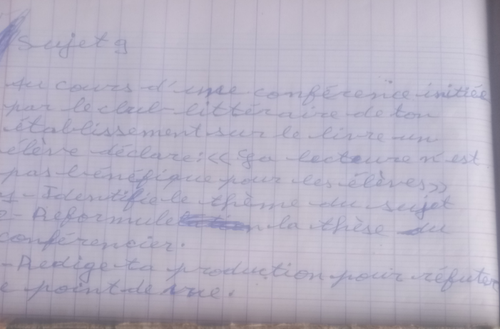 Sujet 9
Au cours d'une conférence initiée
par le club littéraire de ton
établissement sur le livre un
élève déclare : << la lecture n'est
pas bénéfique pour les élèves >>
1- Identifie le thème du sujet
2- Reformule la thèse du
conférencier.
- Rédige ta production pour réfuter
e point de vue.